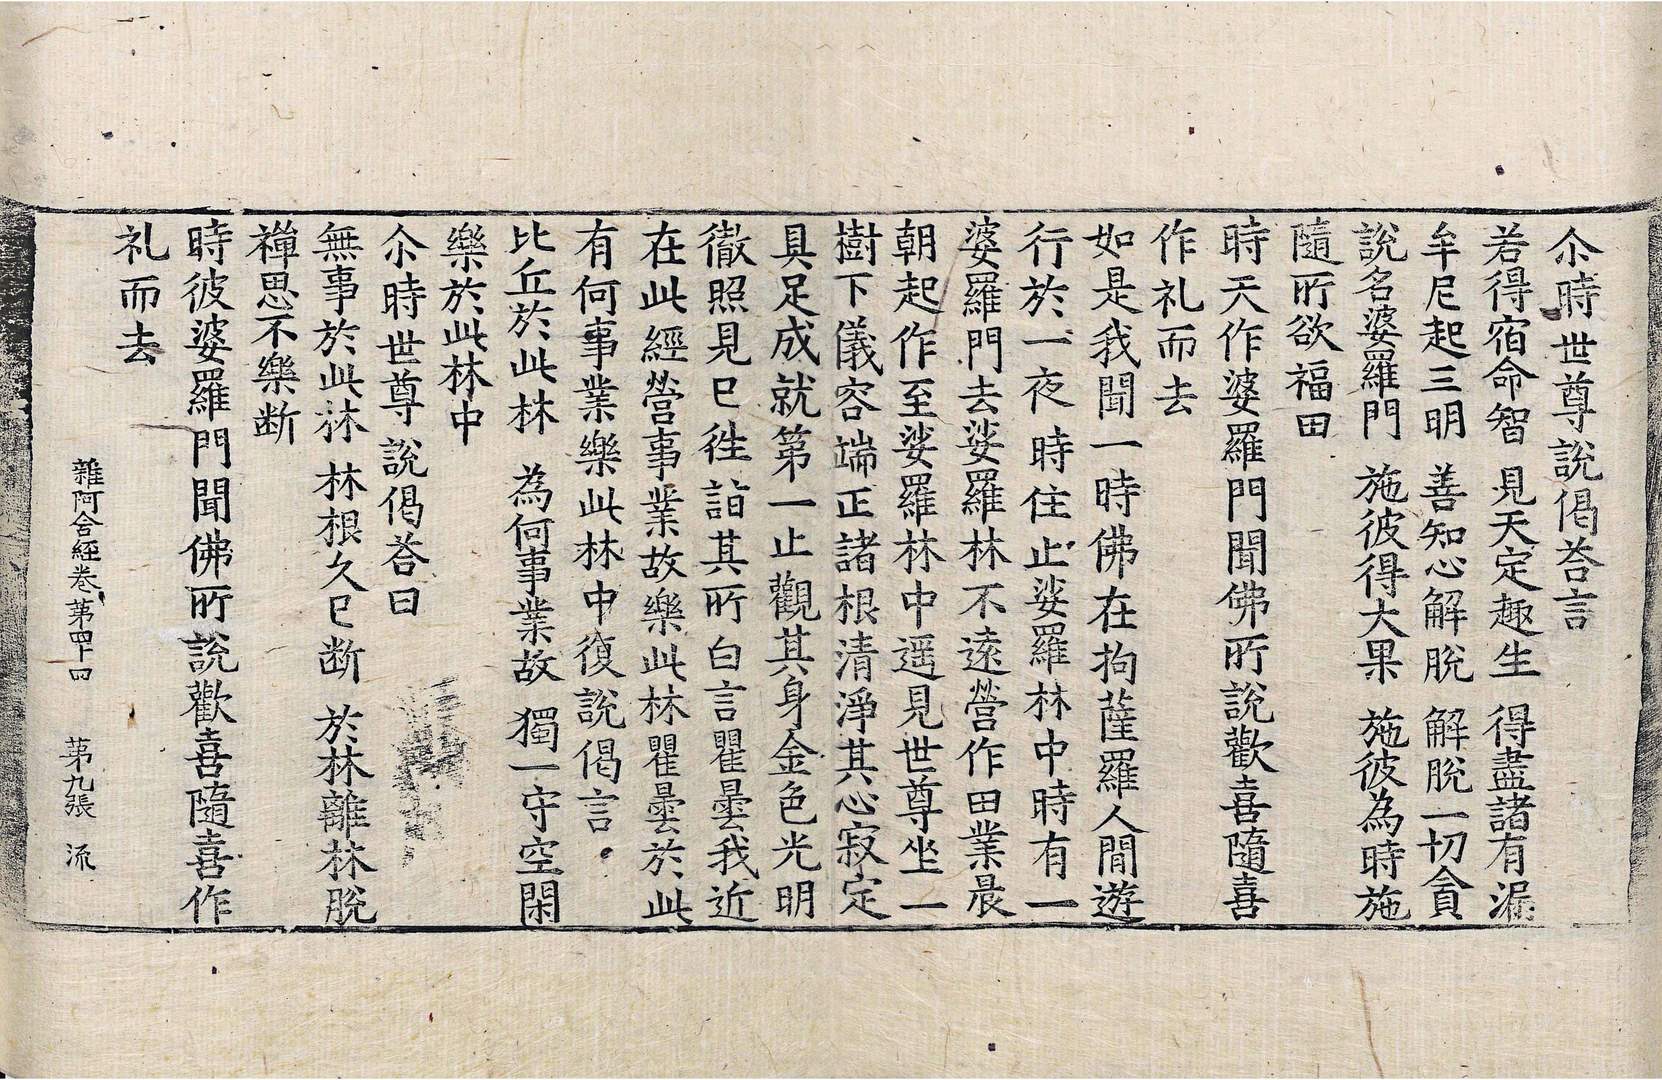 尒時世尊說偈荅言
若得宿命智　見天定趣生　得盡諸有漏
牟尼起三明　善知心解脫　解脫一切貪
說名婆羅門　施彼得大果　施彼為時施
隨所欲福田
時天作婆羅門聞佛所說歡喜隨喜
作礼而去
如是我聞一時佛在拘薩羅人間遊
行於一夜時住止娑羅林中時有一
婆羅門去娑羅林不遠營作田業晨
朝起作至娑羅林中遥見世尊坐一
樹下儀容端正諸根清淨其心寂定
具足成就第一止觀其身金色光明
徹照見已徃詣其所白言瞿曇我近
在此經營事業故樂此林瞿曇於此
有何事業樂此林中復說偈言
比丘於此林　為何事業故　獨一守空閑
樂於此林中
尒時世尊說偈荅曰
無事於此林　林根久已断　於林離林脫
禪思不樂断
時彼婆羅門聞佛所說歡喜隨喜作
礼而去
雜阿含經卷第四十四　第九張　流